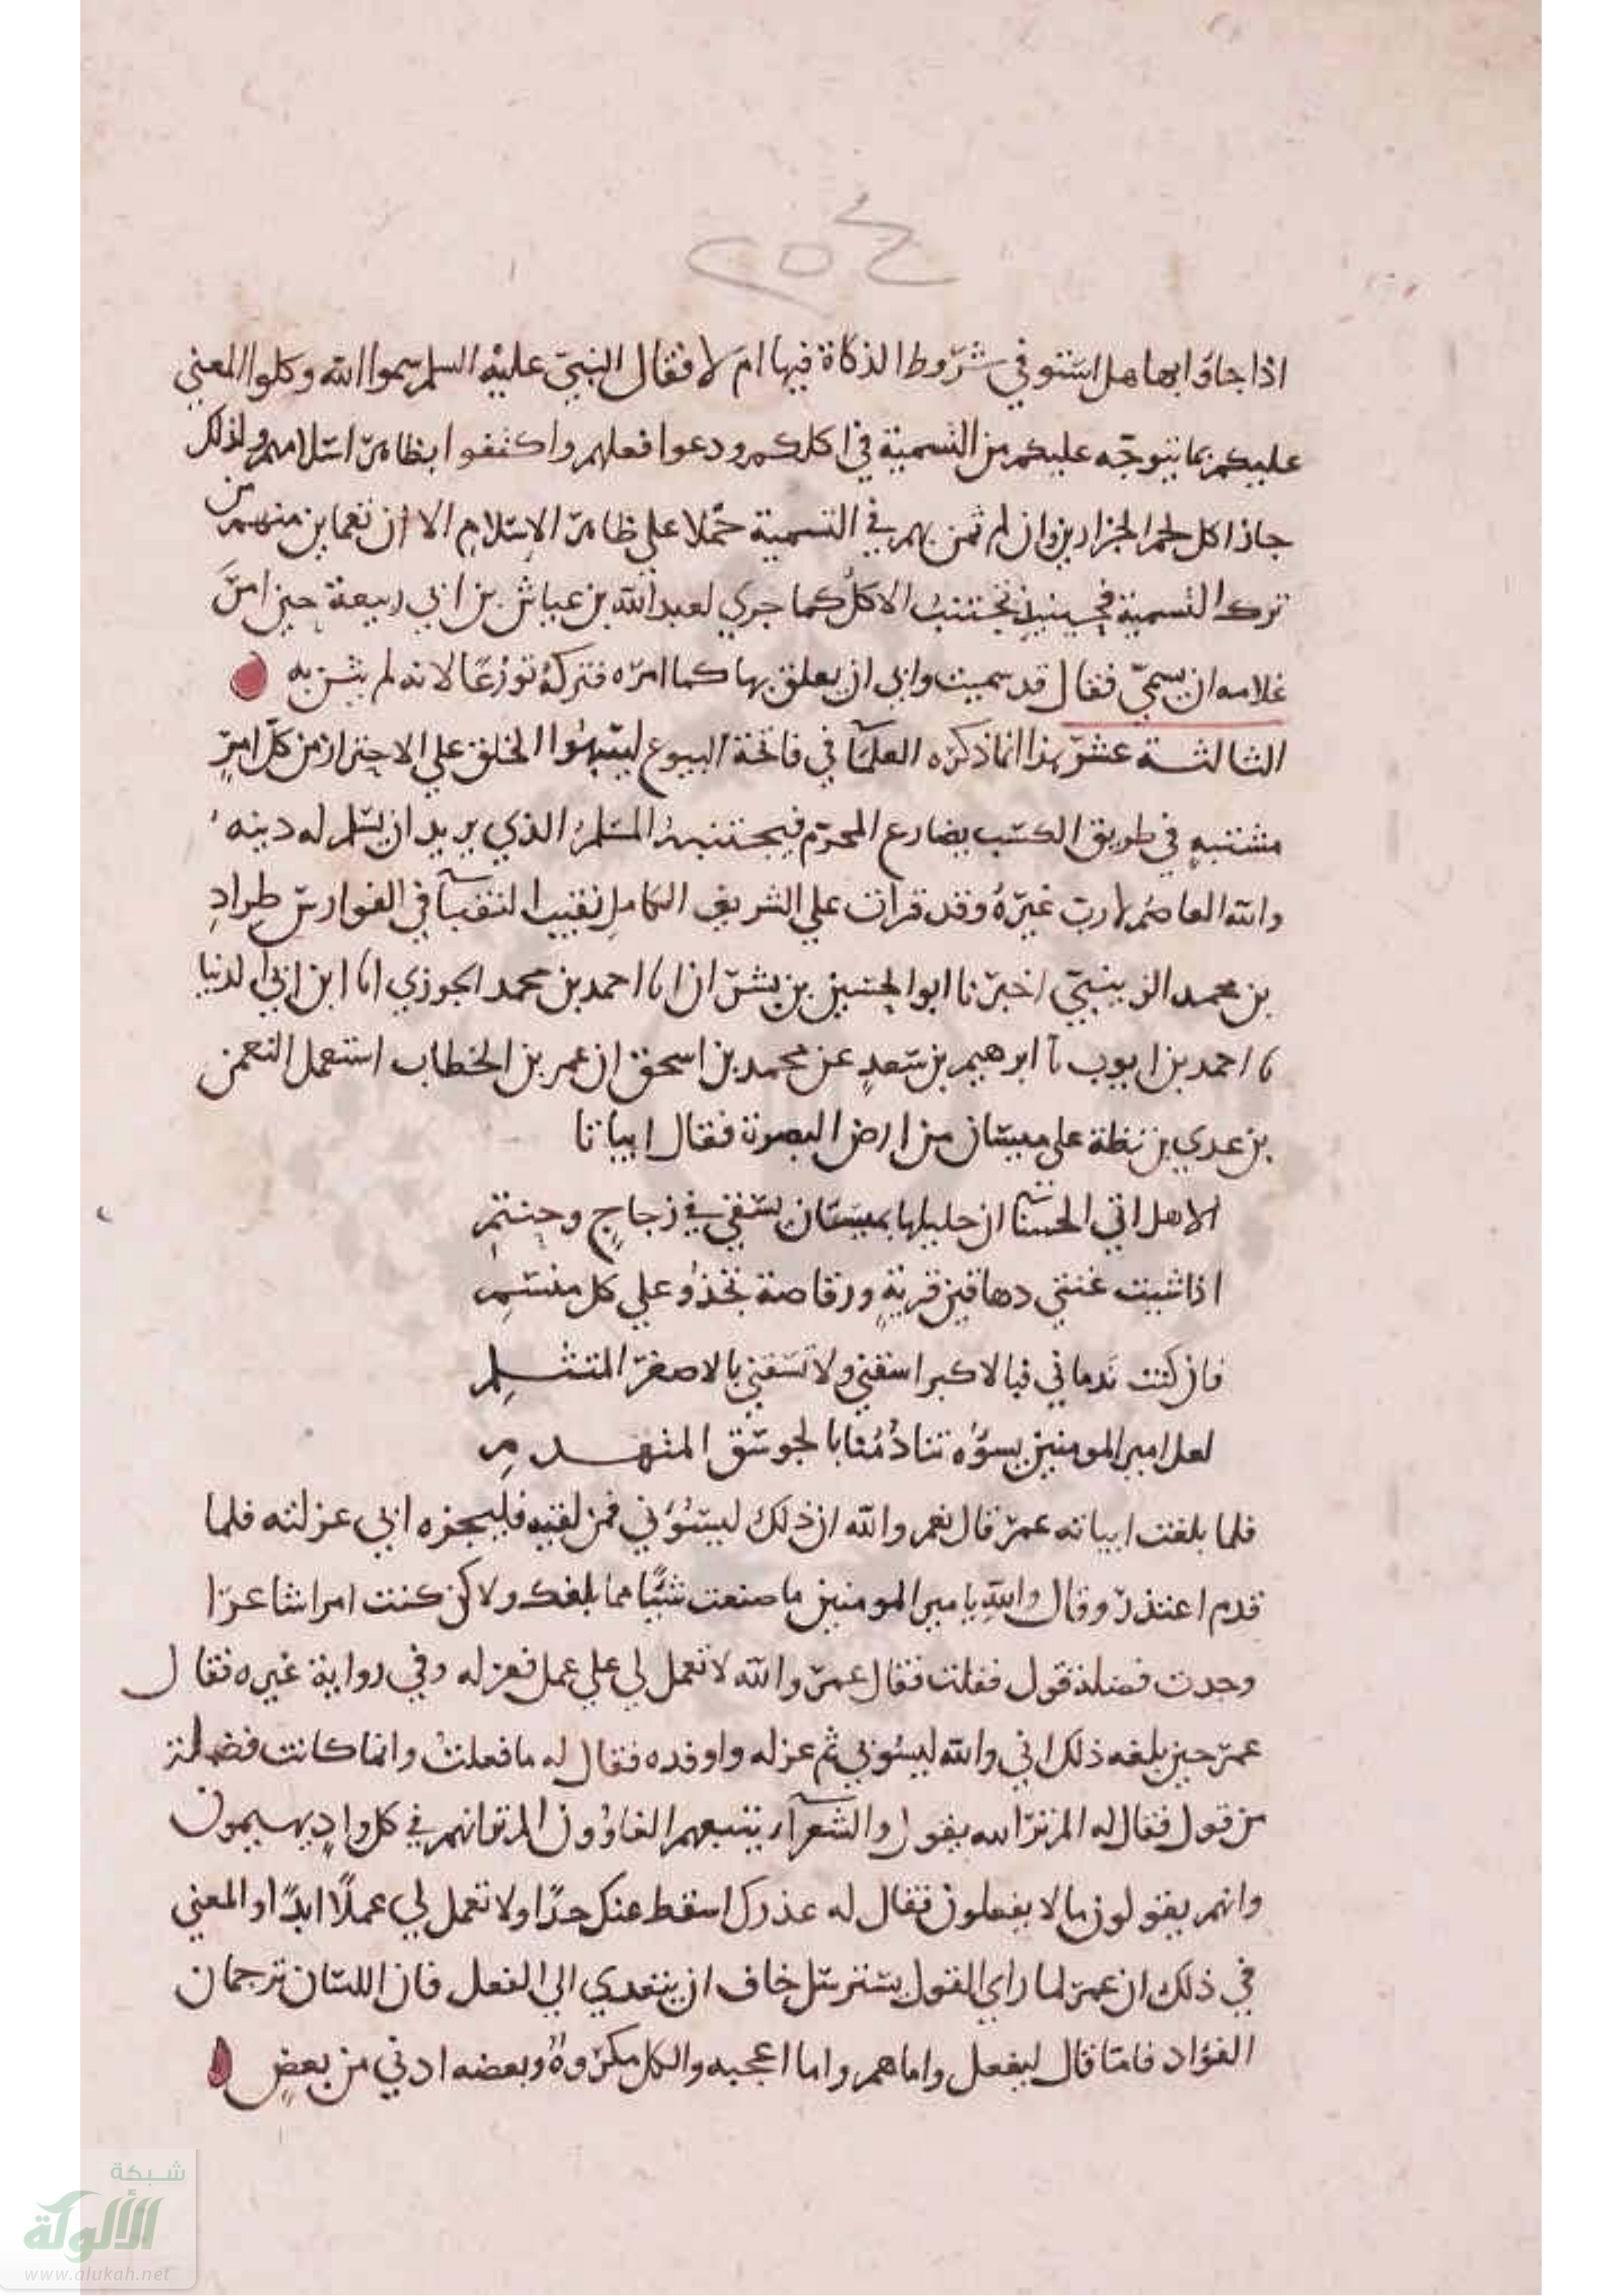 ٢٥٤
اذا جاوا بها هل استوفي شروط الذكاة فيها ام لا فقال النبي عليه السلم سموا الله وكلوا المعني
عليكم بما يتوجه عليكم من التسمية في اكلكم ودعوا فعلهم واكتفوا بظاهر اسلامهم ولذلك
جاز اكل لحم الجزارين وان لم نثق بهم في التسمية حملا علي ظاهر الاسلام الا ان نعاين منهم من
ترك التسمية فحينيذ نجتنب الاكل كما جري لعبد الله بن عياش بن ابي ربيعة حين امر
غلامه ان يسمي فقال قد سميت وابي ان يعلق بها كما امره فتركه تورعا لانه لم يثق به
الثالثة عشر هذا انما ذكره العلمآ في فاتحة البيوع لينبهوا الخلق علي الاحتراز من كل امر
مشتبه في طريق الكسب يضارع المحرم فيجتنبه المسلم الذي يريد ان يسلم له دينه
والله العاصم لا رب غيره وقد قرات علي الشريف الكامل نقيب النقبآ في الفوارس طراد
بن محمد الزينبي اخبرنا ابو الحسين بن بشران انا احمد بن محمد الجوزي انا ابن ابي الدنيا
نا احمد بن ايوب نا ابرهيم بن سعد عن محمد بن اسحق ان عمر بن الخطاب استعمل النعمن
بن عدي بن نظلة علي ميسان من ارض البصرة فقال ابياتا
الا هل اتي الحسنآ ان حليلها بميسان يسقي في زجاج وحنتم
اذا شيت غنتني دهاقين قرية ورقاصة تحذو علي كل منسم
فان كنت ندماني فبالاكبر اسقني ولا تسقني بالاصغر المتثلم
لعل امير المومنين يسوؤه تنادمنا بالجوسق المتهدم
فلما بلغت ابياته عمر قال نعم والله ان ذلك ليسوؤني فمن لقيه فليخبره اني عزلته فلما
قدم اعتذر وقال والله يا مير المومنين ما صنعت شيا مما بلغك ولاكن كنت امرا شاعرا
وجدت فضلة قول فقلت فقال عمر والله لا تعمل لي علي عمل فعزله وفي رواية غيره فقال
عمر حين بلغه ذلك اني والله ليسؤني ثم عزله واوفده فقال له ما فعلت وانما كانت فضلة
من قول فقال له الم تر الله يقول والشعرآ يتبعهم الغاوون الم تر انهم في كل واد يهيمون
وانهم يقولون ما لا يفعلون فقال له عذرك اسقط عنك حدا ولا تعمل لي عملا ابدا والمعني
في ذلك ان عمر لما راي القول يسترسل خاف ان يتعدي الي الفعل فان اللسان ترجمان
الفؤاد فاما قال ليفعل واما هم واما اعجبه والكل مكروه وبعضه ادني من بعض
شبكة
الألوكة
www.alukah.net